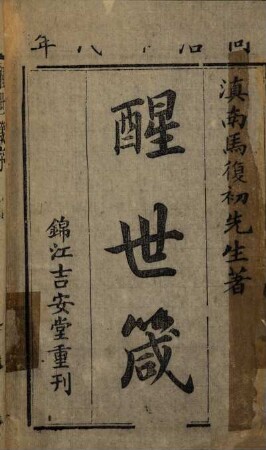 同治十八年
滇南馬復初先生著
醒世箴
錦江吉安堂重刊